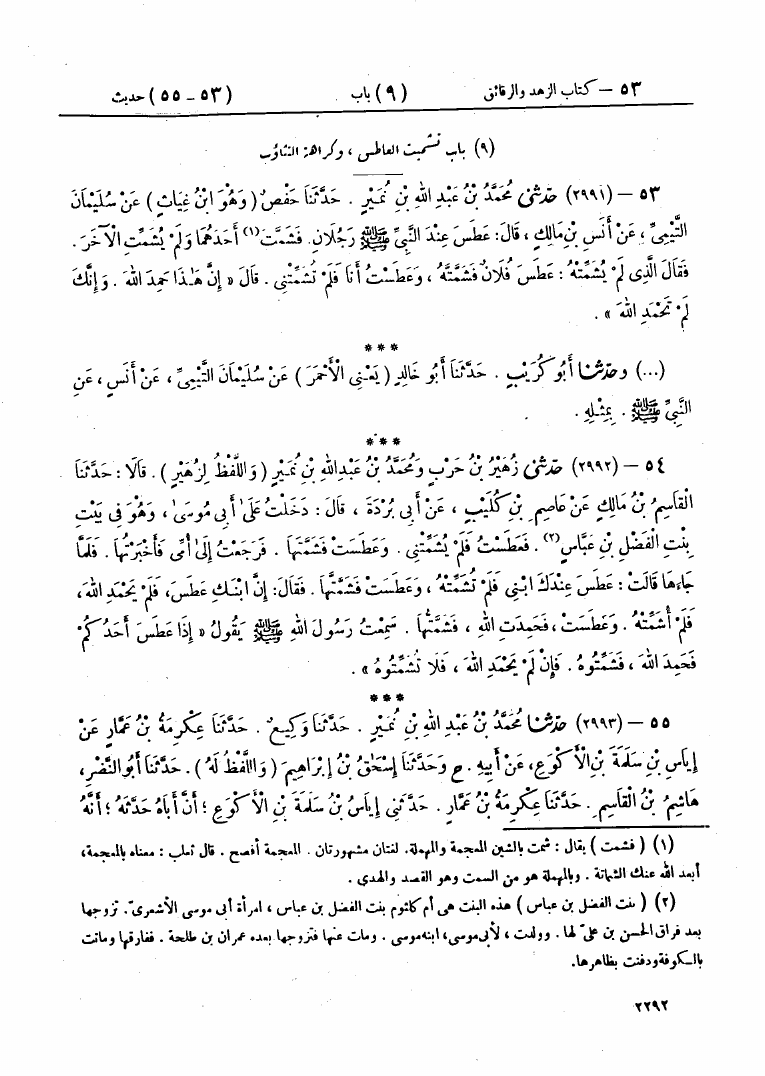 ٥٣ – كتاب الزهد والرقائق (٩) باب (٥٣ – ٥٥) حديث
(٩) باب تشميت العاطس، وكراهة التثاؤب
٥٣ – (٢٩٩١) حَدَّثَنِي مُحَمَّدُ بْنُ عَبْدِ اللهِ بْنِ نُمَيْرٍ. حَدَّثَنَا حَفْصٌ (وَهُوَ ابْنُ غِيَاثٍ) عَنْ سُلَيْمَانَ
التَّيْمِيِّ، عَنْ أَنَسِ بْنِ مَالِكٍ، قَالَ: عَطَسَ عِنْدَ النَّبِيِّ ﷺ رَجُلَانِ. فَشَمَّتَ(١) أَحَدَهُمَا وَلَمْ يُشَمِّتِ الْآخَرَ.
فَقَالَ الَّذِي لَمْ يُشَمِّتْهُ: عَطَسَ فُلَانٌ فَشَمَّتَّهُ، وَعَطَسْتُ أَنَا فَلَمْ تُشَمِّتْنِي. قَالَ «إِنَّ هَٰذَا حَمِدَ اللهَ. وَإِنَّكَ
لَمْ تَحْمَدِ اللهَ».
***
(...) وحَدَّثَنَا أَبُو كُرَيْبٍ. حَدَّثَنَا أَبُو خَالِدٍ (يَعْنِي الْأَحْمَرَ) عَنْ سُلَيْمَانَ التَّيْمِيِّ، عَنْ أَنَسٍ، عَنِ
النَّبِيِّ ﷺ. بِمِثْلِهِ.
***
٥٤ – (٢٩٩٢) حَدَّثَنِي زُهَيْرُ بْنُ حَرْبٍ وَمُحَمَّدُ بْنُ عَبْدِ اللهِ بْنِ نُمَيْرٍ (وَاللَّفْظُ لِزُهَيْرٍ). قَالَا: حَدَّثَنَا
الْقَاسِمُ بْنُ مَالِكٍ عَنْ عَاصِمِ بْنِ كُلَيْبٍ، عَنْ أَبِي بُرْدَةَ، قَالَ: دَخَلْتُ عَلَىٰ أَبِي مُوسَىٰ، وَهُوَ فِي بَيْتِ
بِنْتِ الْفَضْلِ بْنِ عَبَّاسٍ(٢). فَعَطَسْتُ فَلَمْ يُشَمِّتْنِي. وَعَطَسَتْ فَشَمَّتَهَا. فَرَجَعْتُ إِلَىٰ أُمِّي فَأَخْبَرْتُهَا. فَلَمَّا
جَاءَهَا قَالَتْ: عَطَسَ عِنْدَكَ ابْنِي فَلَمْ تُشَمِّتْهُ، وَعَطَسَتْ فَشَمَّتَّهَا. فَقَالَ: إِنَّ ابْنَكِ عَطَسَ، فَلَمْ يَحْمَدِ اللهَ،
فَلَمْ أُشَمِّتْهُ. وَعَطَسَتْ، فَحَمِدَتِ اللهَ، فَشَمَّتُّهَا. سَمِعْتُ رَسُولَ اللهِ ﷺ يَقُولُ «إِذَا عَطَسَ أَحَدُكُمْ
فَحَمِدَ اللهَ، فَشَمِّتُوهُ. فَإِنْ لَمْ يَحْمَدِ اللهَ، فَلَا تُشَمِّتُوهُ».
***
٥٥ – (٢٩٩٣) حَدَّثَنَا مُحَمَّدُ بْنُ عَبْدِ اللهِ بْنِ نُمَيْرٍ. حَدَّثَنَا وَكِيعٌ. حَدَّثَنَا عِكْرِمَةُ بْنُ عَمَّارٍ عَنْ
إِيَاسِ بْنِ سَلَمَةَ بْنِ الْأَكْوَعِ، عَنْ أَبِيهِ. ح وَحَدَّثَنَا إِسْحَٰقُ بْنُ إِبْرَاهِيمَ (وَاللَّفْظُ لَهُ). حَدَّثَنَا أَبُو النَّضْرِ،
هَاشِمُ بْنُ الْقَاسِمِ. حَدَّثَنَا عِكْرِمَةُ بْنُ عَمَّارٍ. حَدَّثَنِي إِيَاسُ بْنُ سَلَمَةَ بْنِ الْأَكْوَعِ؛ أَنَّ أَبَاهُ حَدَّثَهُ؛ أَنَّهُ
(١) (فشمت) يقال: شمت بالشين المعجمة والمهملة. لغتان مشهورتان. المعجمة أفصح. قال ثعلب: معناه بالمعجمة،
أبعد الله عنك الشماتة. وبالمهملة هو من السمت وهو القصد والهدى.
(٢) (بنت الفضل بن عباس) هذه البنت هى أم كلثوم بنت الفضل بن عباس، امرأة أبى موسى الأشعرىّ. تزوجها
بعد فراق الحسن بن علىّ لها. وولدت، لأبى موسى، ابنه موسى. ومات عنها فتزوجها بعده عمران بن طلحة. ففارقها وماتت
بالكوفة ودفنت بظاهرها.
٢٢٩٢